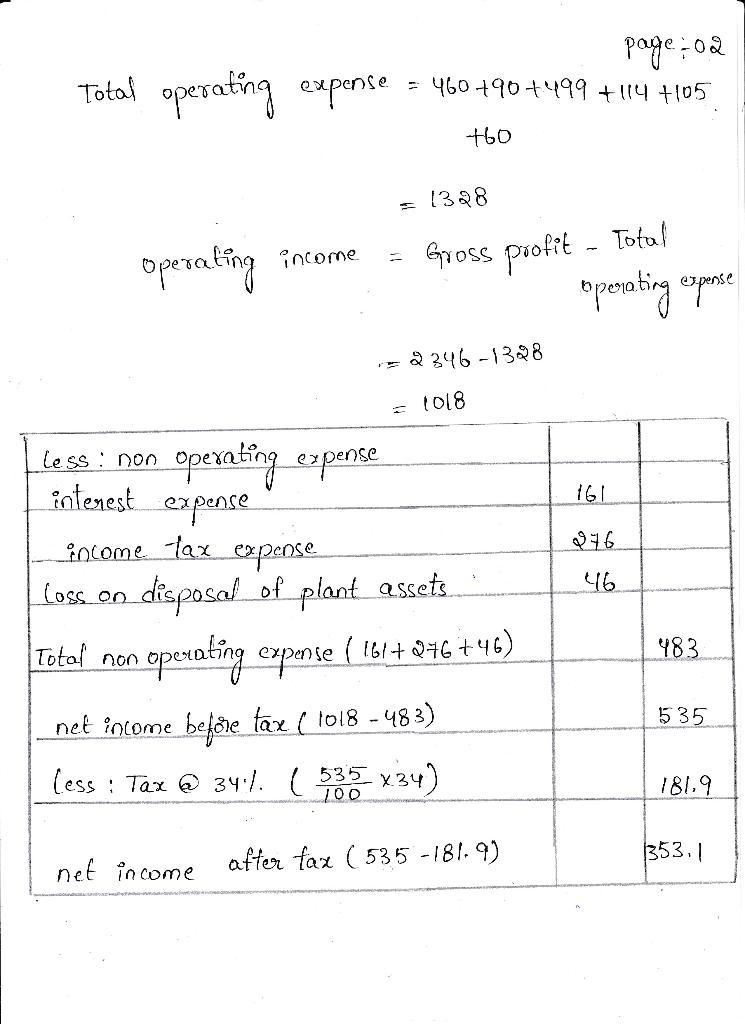 page :- 02
Total operating expense = 460+90+499+114+105
+60
= 1328
operating income = Gross profit - Total
operating expense
= 2346-1328
= 1018
Less : non operating expense
interest expense 161
income tax expense 276
Loss on disposal of plant assets 46
Total non operating expense (161+276+46) 483
net income before tax (1018-483) 535
Less : Tax @ 34%. (535/100 x34) 181.9
net income after tax (535-181.9) 353.1